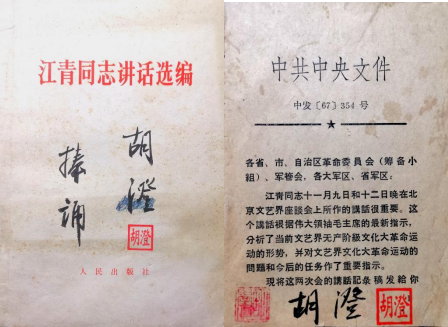 江青同志讲话选编
胡澄
捧诵
胡澄
人民出版社
中共中央文件
中发〔67〕354 号
各省、市、自治区革命委员会(筹备小
组)、军管会,各大军区、省军区:
江青同志十一月九日和十二日晚在北
京文艺界座谈会上所作的講話很重要。这
个講話根据伟大領袖毛主席的最新指示,
分析了当前文艺界无产阶級文化大革命运
动的形势,并对文艺界文化大革命运动的
問題和今后的任务作了重要指示。
現将这两次会的講話記录稿发給你
胡澄
胡澄